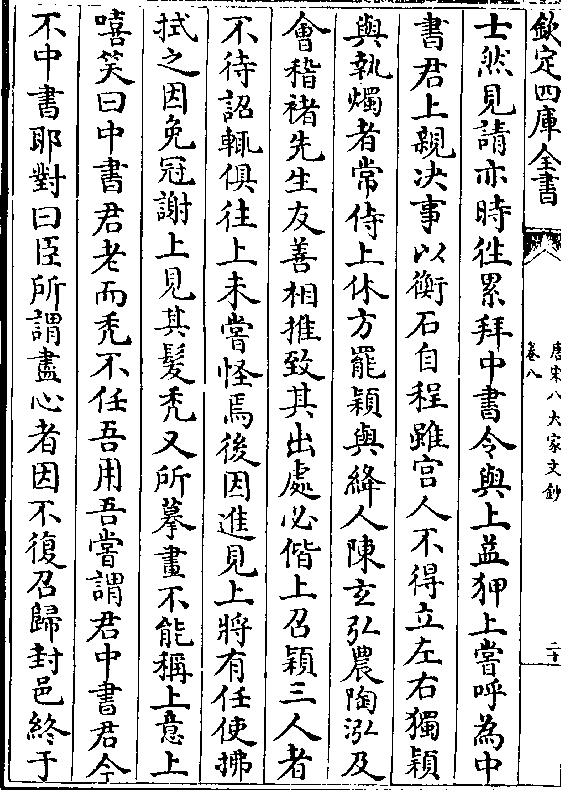 欽定四庫全書
唐宋八大家文鈔
卷八
二十
士然見請亦時徃累拜中書令與上益狎上嘗呼為中
書君上親决事以衡石自程雖宫人不得立左右獨穎
與執燭者常侍上休方罷穎與絳人陳玄弘農陶泓及
會稽禇先生友善相推致其出處必偕上召穎三人者
不待詔輒俱往上未嘗怪焉後因進見上將有任使拂
拭之因免冠謝上見其髮秃又所摹畫不能稱上意上
嘻笑曰中書君老而秃不任吾用吾嘗謂君中書君今
不中書耶對曰臣所謂盡心者因不復召歸封邑終于